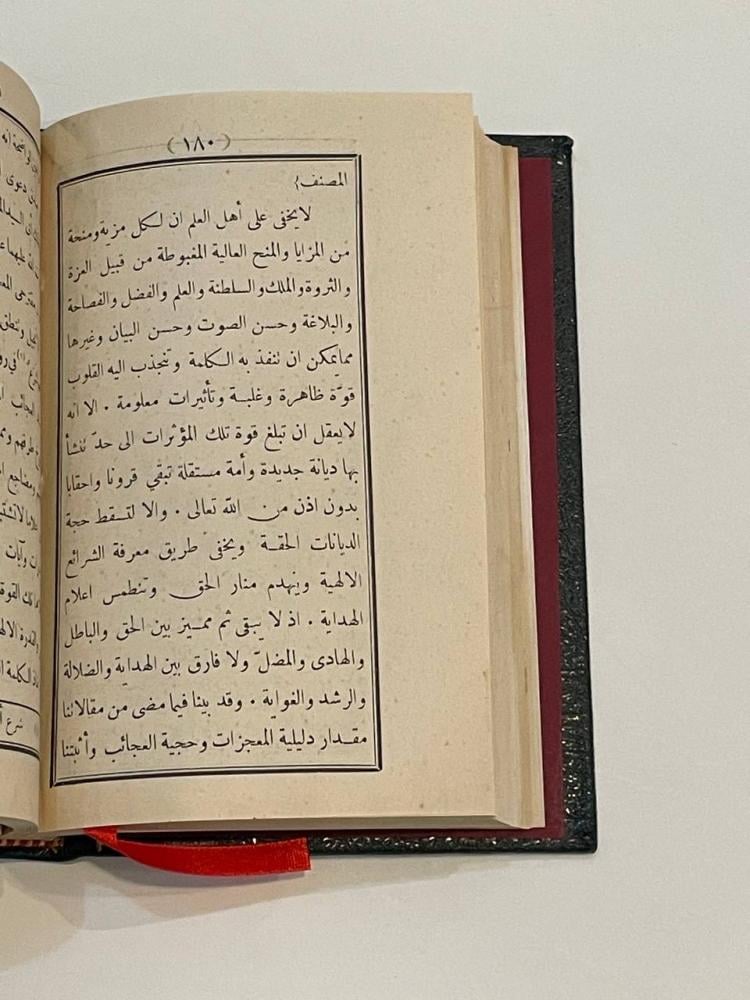 (١٨٠)
المصنف}
لايخفى على أهل العلم ان لكل مزية ومنحة
من المزايا والمنح العالية المغبوطة من قبيل العزة
والثروة والملك والسلطنة والعلم والفضل والفصاحة
والبلاغة وحسن الصوت وحسن البيان وغيرها
مما يمكن ان تنفذ به الكلمة وتنجذب اليه القلوب
قوّة ظاهرة وغلبة وتأثيرات معلومة . الا انه
لايعقل ان تبلغ قوة تلك المؤثرات الى حدّ تنشأ
بها ديانة جديدة وأمة مستقلة تبقي قرونا واحقابا
بدون اذن من الله تعالى . والا لتسقط حجة
الديانات الحقة ويخفى طريق معرفة الشرائع
الالهية وينهدم منار الحق وتنطمس اعلام
الهداية . اذ لا يبقى ثم مميز بين الحق والباطل
والهادى والمضلّ ولا فارق بين الهداية والضلالة
والرشد والغواية . وقد بينا فيما مضى من مقالاتنا
مقدار دليلية المعجزات وحجية العجائب وأثبتنا